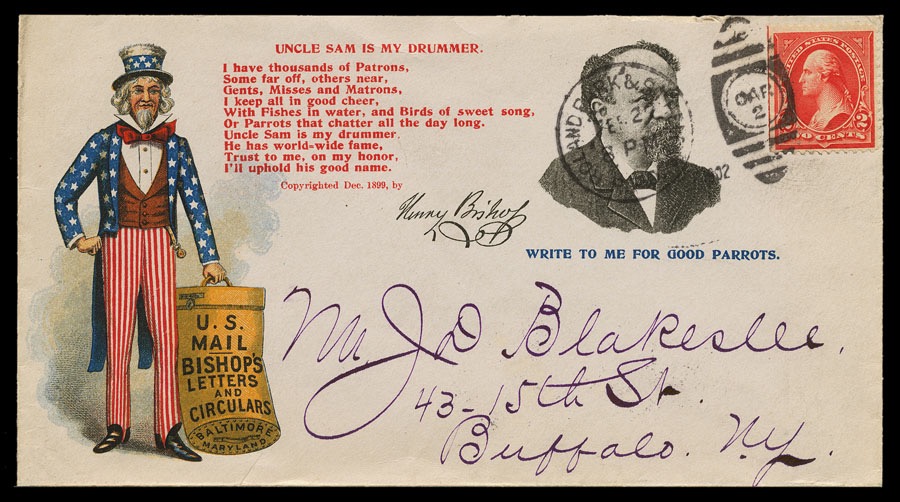 UNCLE SAM IS MY DRUMMER.
I have thousands of Patrons,
Some far off, others near,
Gents, Misses and Matrons,
I keep all in good cheer,
With Fishes in water, and Birds of sweet song,
Or Parrots that chatter all the day long.
Uncle Sam is my drummer.
He has world-wide fame,
Trust to me, on my honor,
I'll uphold his good name.
Copyrighted Dec. 1899, by
Henry Bishop
WRITE TO ME FOR GOOD PARROTS.
UNITED STATES POSTAGE
TWO CENTS
2
2
U.S.
MAIL
BISHOP'S
LETTERS
AND
CIRCULARS
BALTIMORE
MARYLAND
Mr J D Blakeslee.
43-15th St.
Buffalo. N.Y.